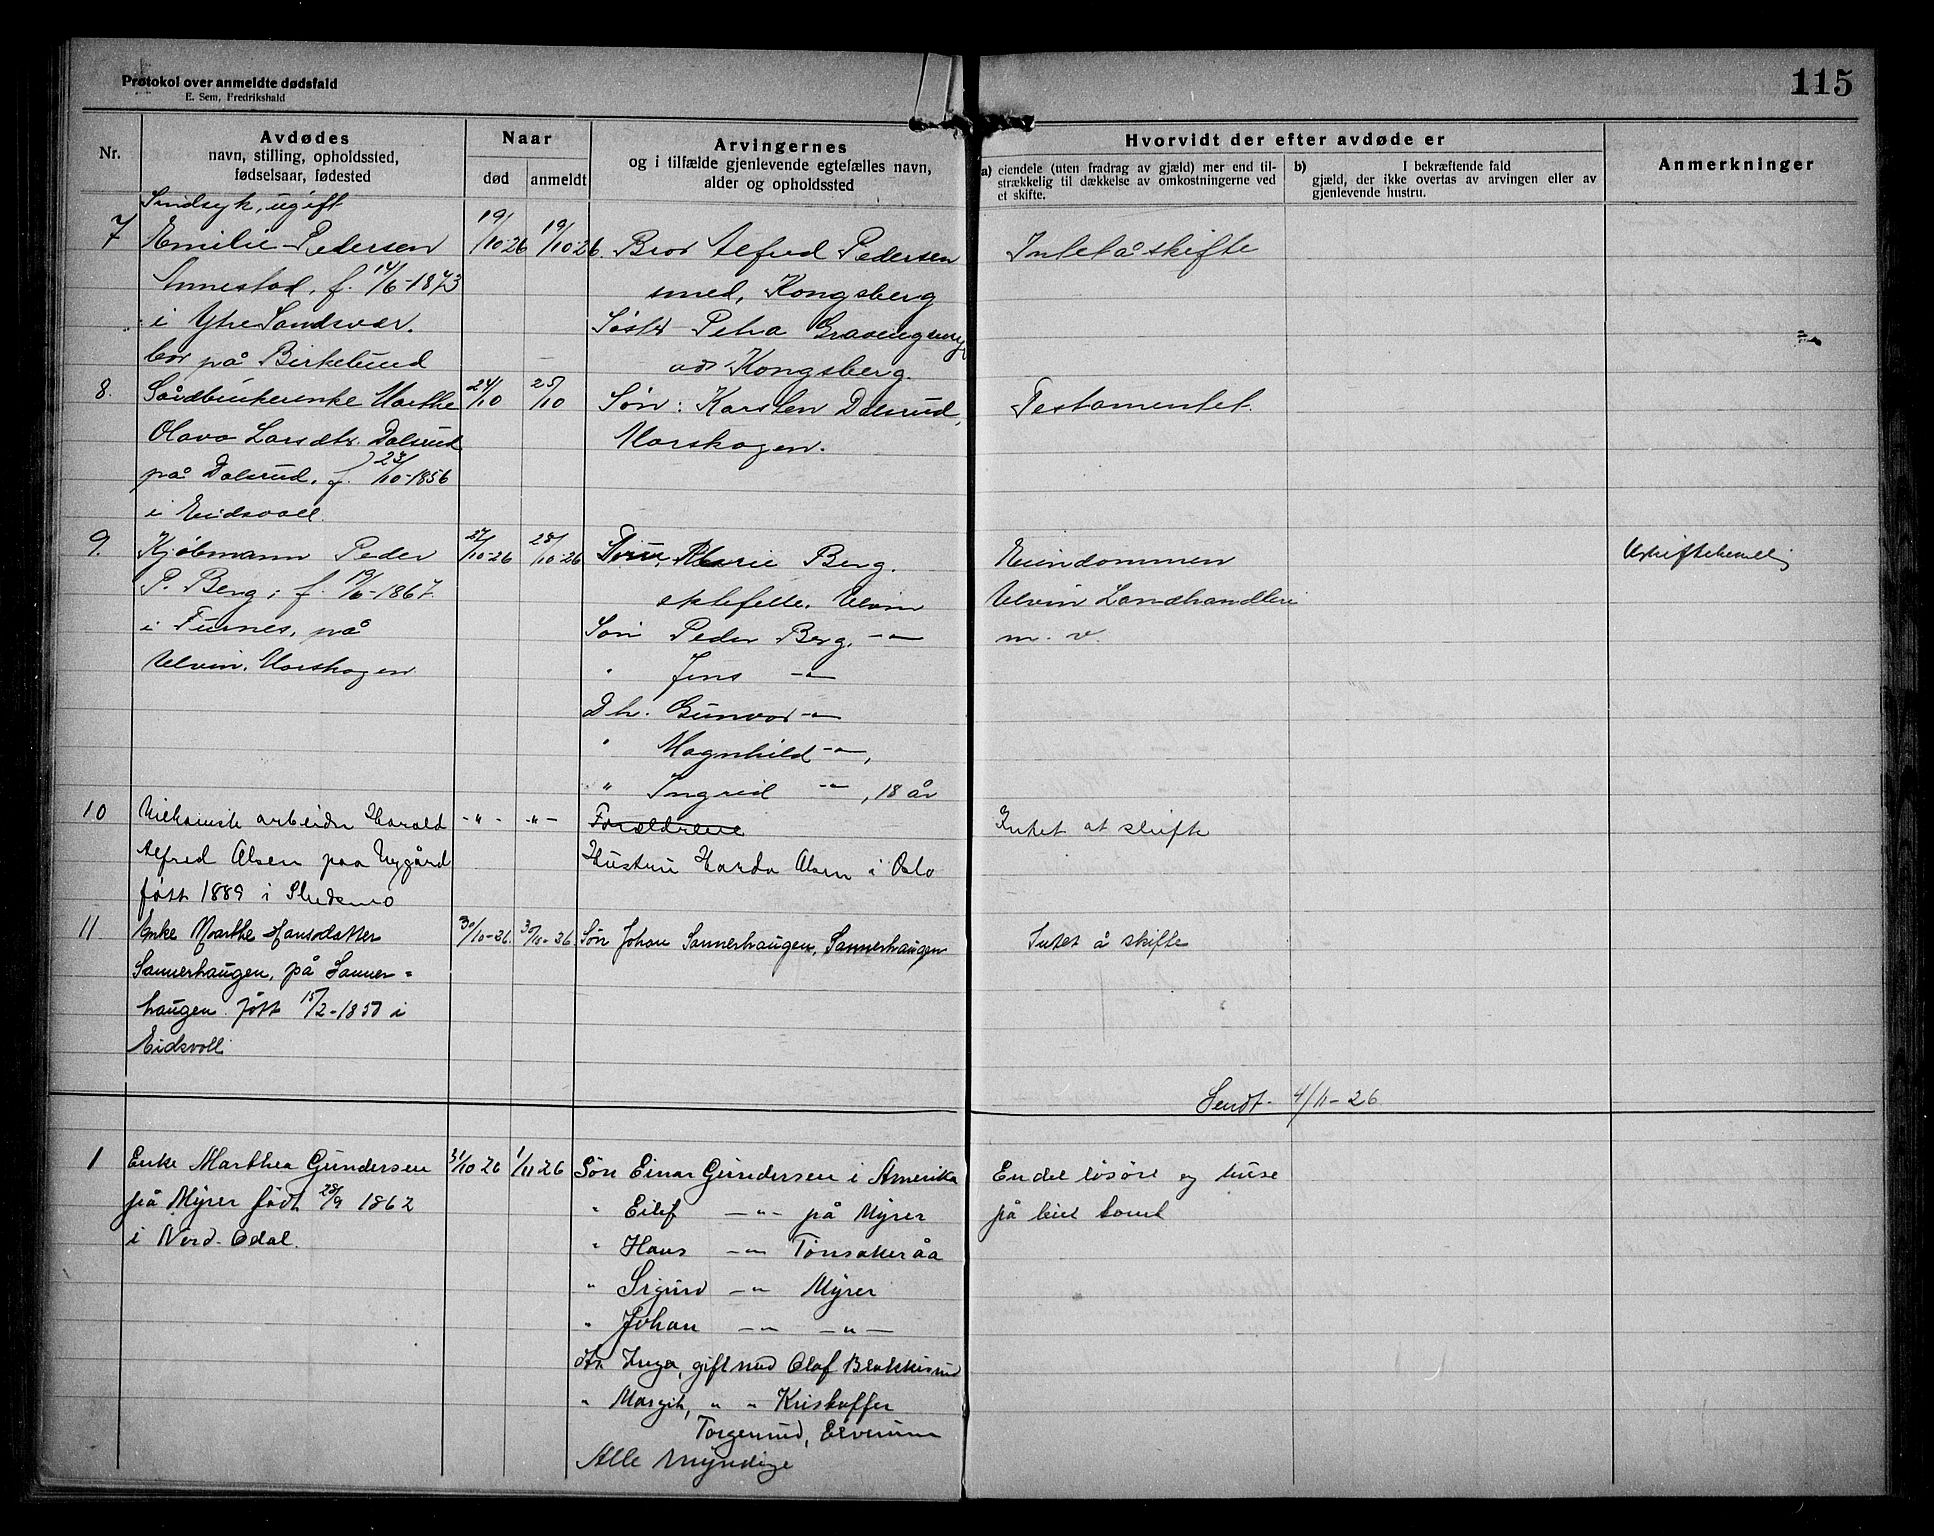 Protokol over anmeldte dødsfald
E. Sem, Fredrikshald
115
Nr.
Avdødes
navn, stilling, opholdssted,
fødselsaar, fødested
Naar
død
anmeldt
Arvingernes
og i tilfælde gjenlevende egtefælles navn,
alder og opholdssted
Hvorvidt der efter avdøde er
a) eiendele (uten fradrag av gjæld) mer end til-
strækkelig til dækkelse av omkostningerne ved
et skifte.
b) I bekræftende fald
gjæld, der ikke overtas av arvingen eller av
gjenlevende hustru.
Anmerkninger
Sindsyk, ugift
7 Emilie Pedersen 19/10-26 19/10-26 Bror Alfred Pedersen Intet å skifte
f. 14/6-1873 smed, Kongsberg
i Ytre Sandsvær. Søster Petra
bor på Birkelund Kongsberg.
8. Marthe 24/10 25/10 Søn: Karsten Dalsrud, Testamentet.
Olava Larsdtr. Dalsrud Morskogen.
på Dalsrud, f. 23/10-1856
i Eidsvoll.
9. Kjøbmann Peder 27/10-26 28/10-26 Marie Berg. Eiendommen Uskiftebevilling
P. Berg, f. 19/6-1867 ektefelle, Ulvin Ulvin Landhandleri
i Furnes, på Søn Peder Berg, -"- m. v.
Ulvin, Morskogen " Jens -"-
Dtr. Gunvor -"-
" Magnhild -"-,
" Ingrid -"-, 18 år
10 Mekanisk arbeider Harald -"- -"- Forældrene Intet at skifte
Alfred Olsen paa Nygård Hustru Olsen i Oslo
født 1889 i Skedsmo
11 Enke Marthe Hansdatter 30/10-26. 30/10-26. Søn Johan Sannerhaugen, Sannerhaugen Intet å skifte
Sannerhaugen, på Sanner=
haugen. Født 15/2-1850 i
Eidsvoll
Sendt 4/11-26
1 Enke Marthea Gundersen 31/10 26 1/11 26 Søn Einar Gundersen i Amerika En del løsøre og huse
på Myrer født 28/9 1862 " Eilef -"- på Myrer på leiet tomt
i Nord-Odal. " Hans -"- Tønsakeråa
" Sigurd -"- Myrer
" Johan -"- -"-
dtr Inga, gift med Olaf Blekkisrud
" Margit, " " Kristoffer
Torgerrud, Elverum
Alle myndige